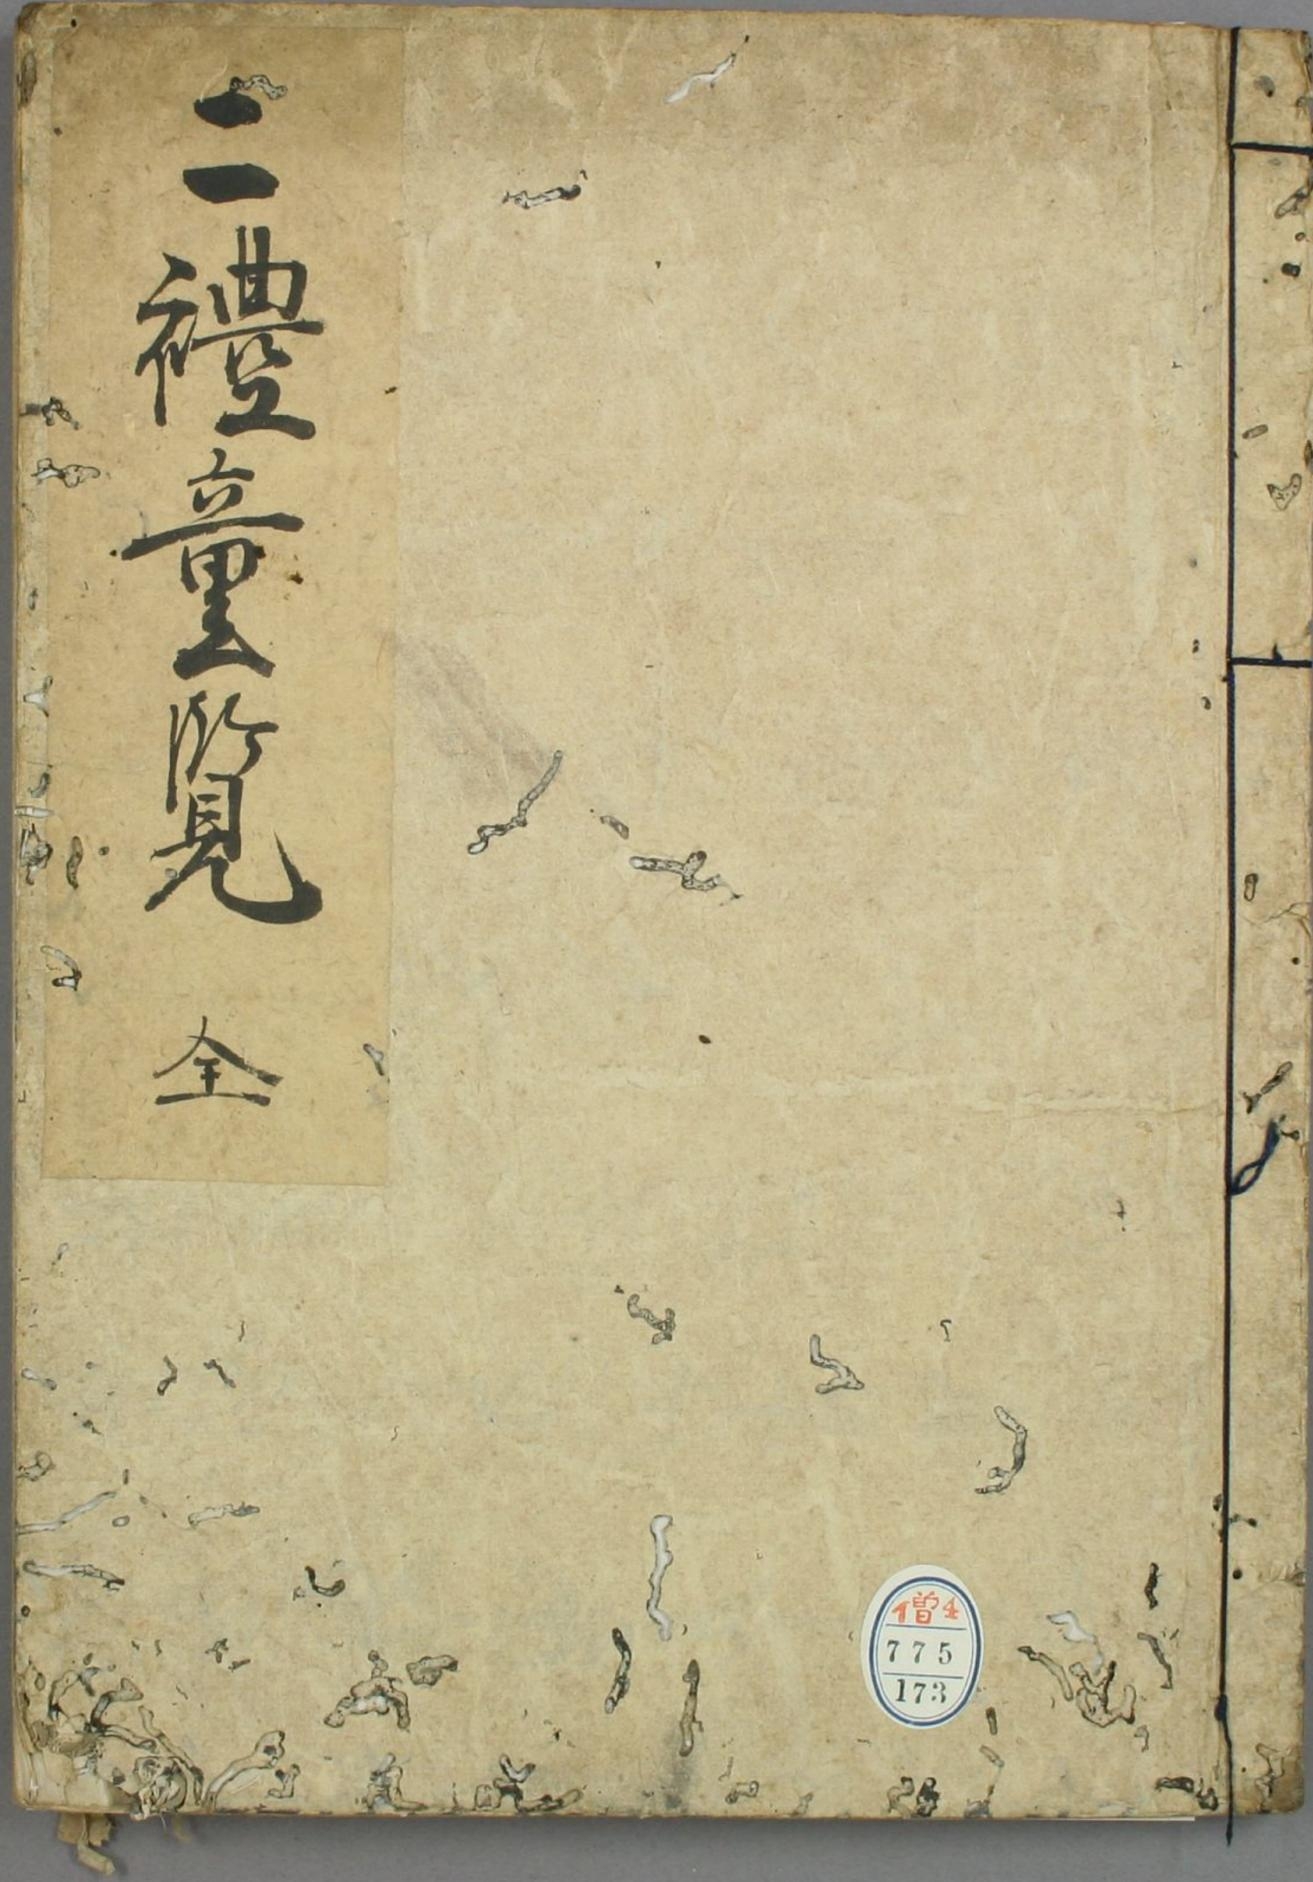 二禮童覽
全
僧4
775
173